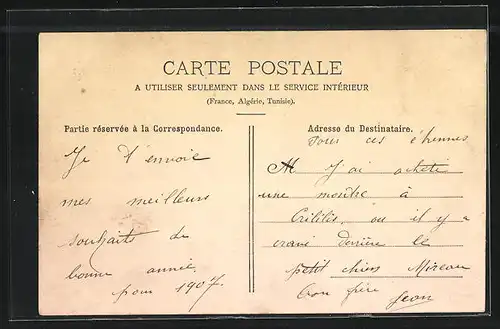 CARTE POSTALE
A UTILISER SEULEMENT DANS LE SERVICE INTÉRIEUR
(France, Algérie, Tunisie).
Partie réservée à la Correspondance.
Je t'envoie
mes meilleurs
souhaits de
bonne année
pour 1907
Adresse du Destinataire.
Pour ces étrennes
M J'ai acheté
une montre à
ou il y a
derrière le
petit chien
ton frère
Jean